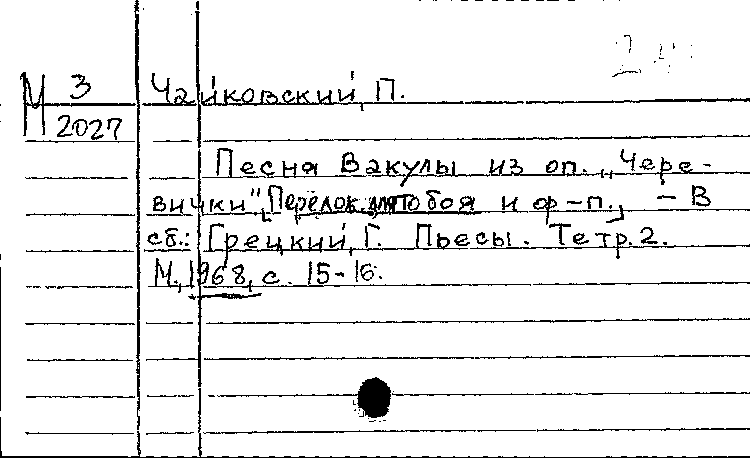 М 3
2027
Чайковский, П.
Песня Вакулы из оп. „Чере-
вички". [Перелож. для гобоя и ф-п.] - В
сб.: Грецкий, Г. Пьесы. Тетр. 2.
М., 1968, с. 15-16.